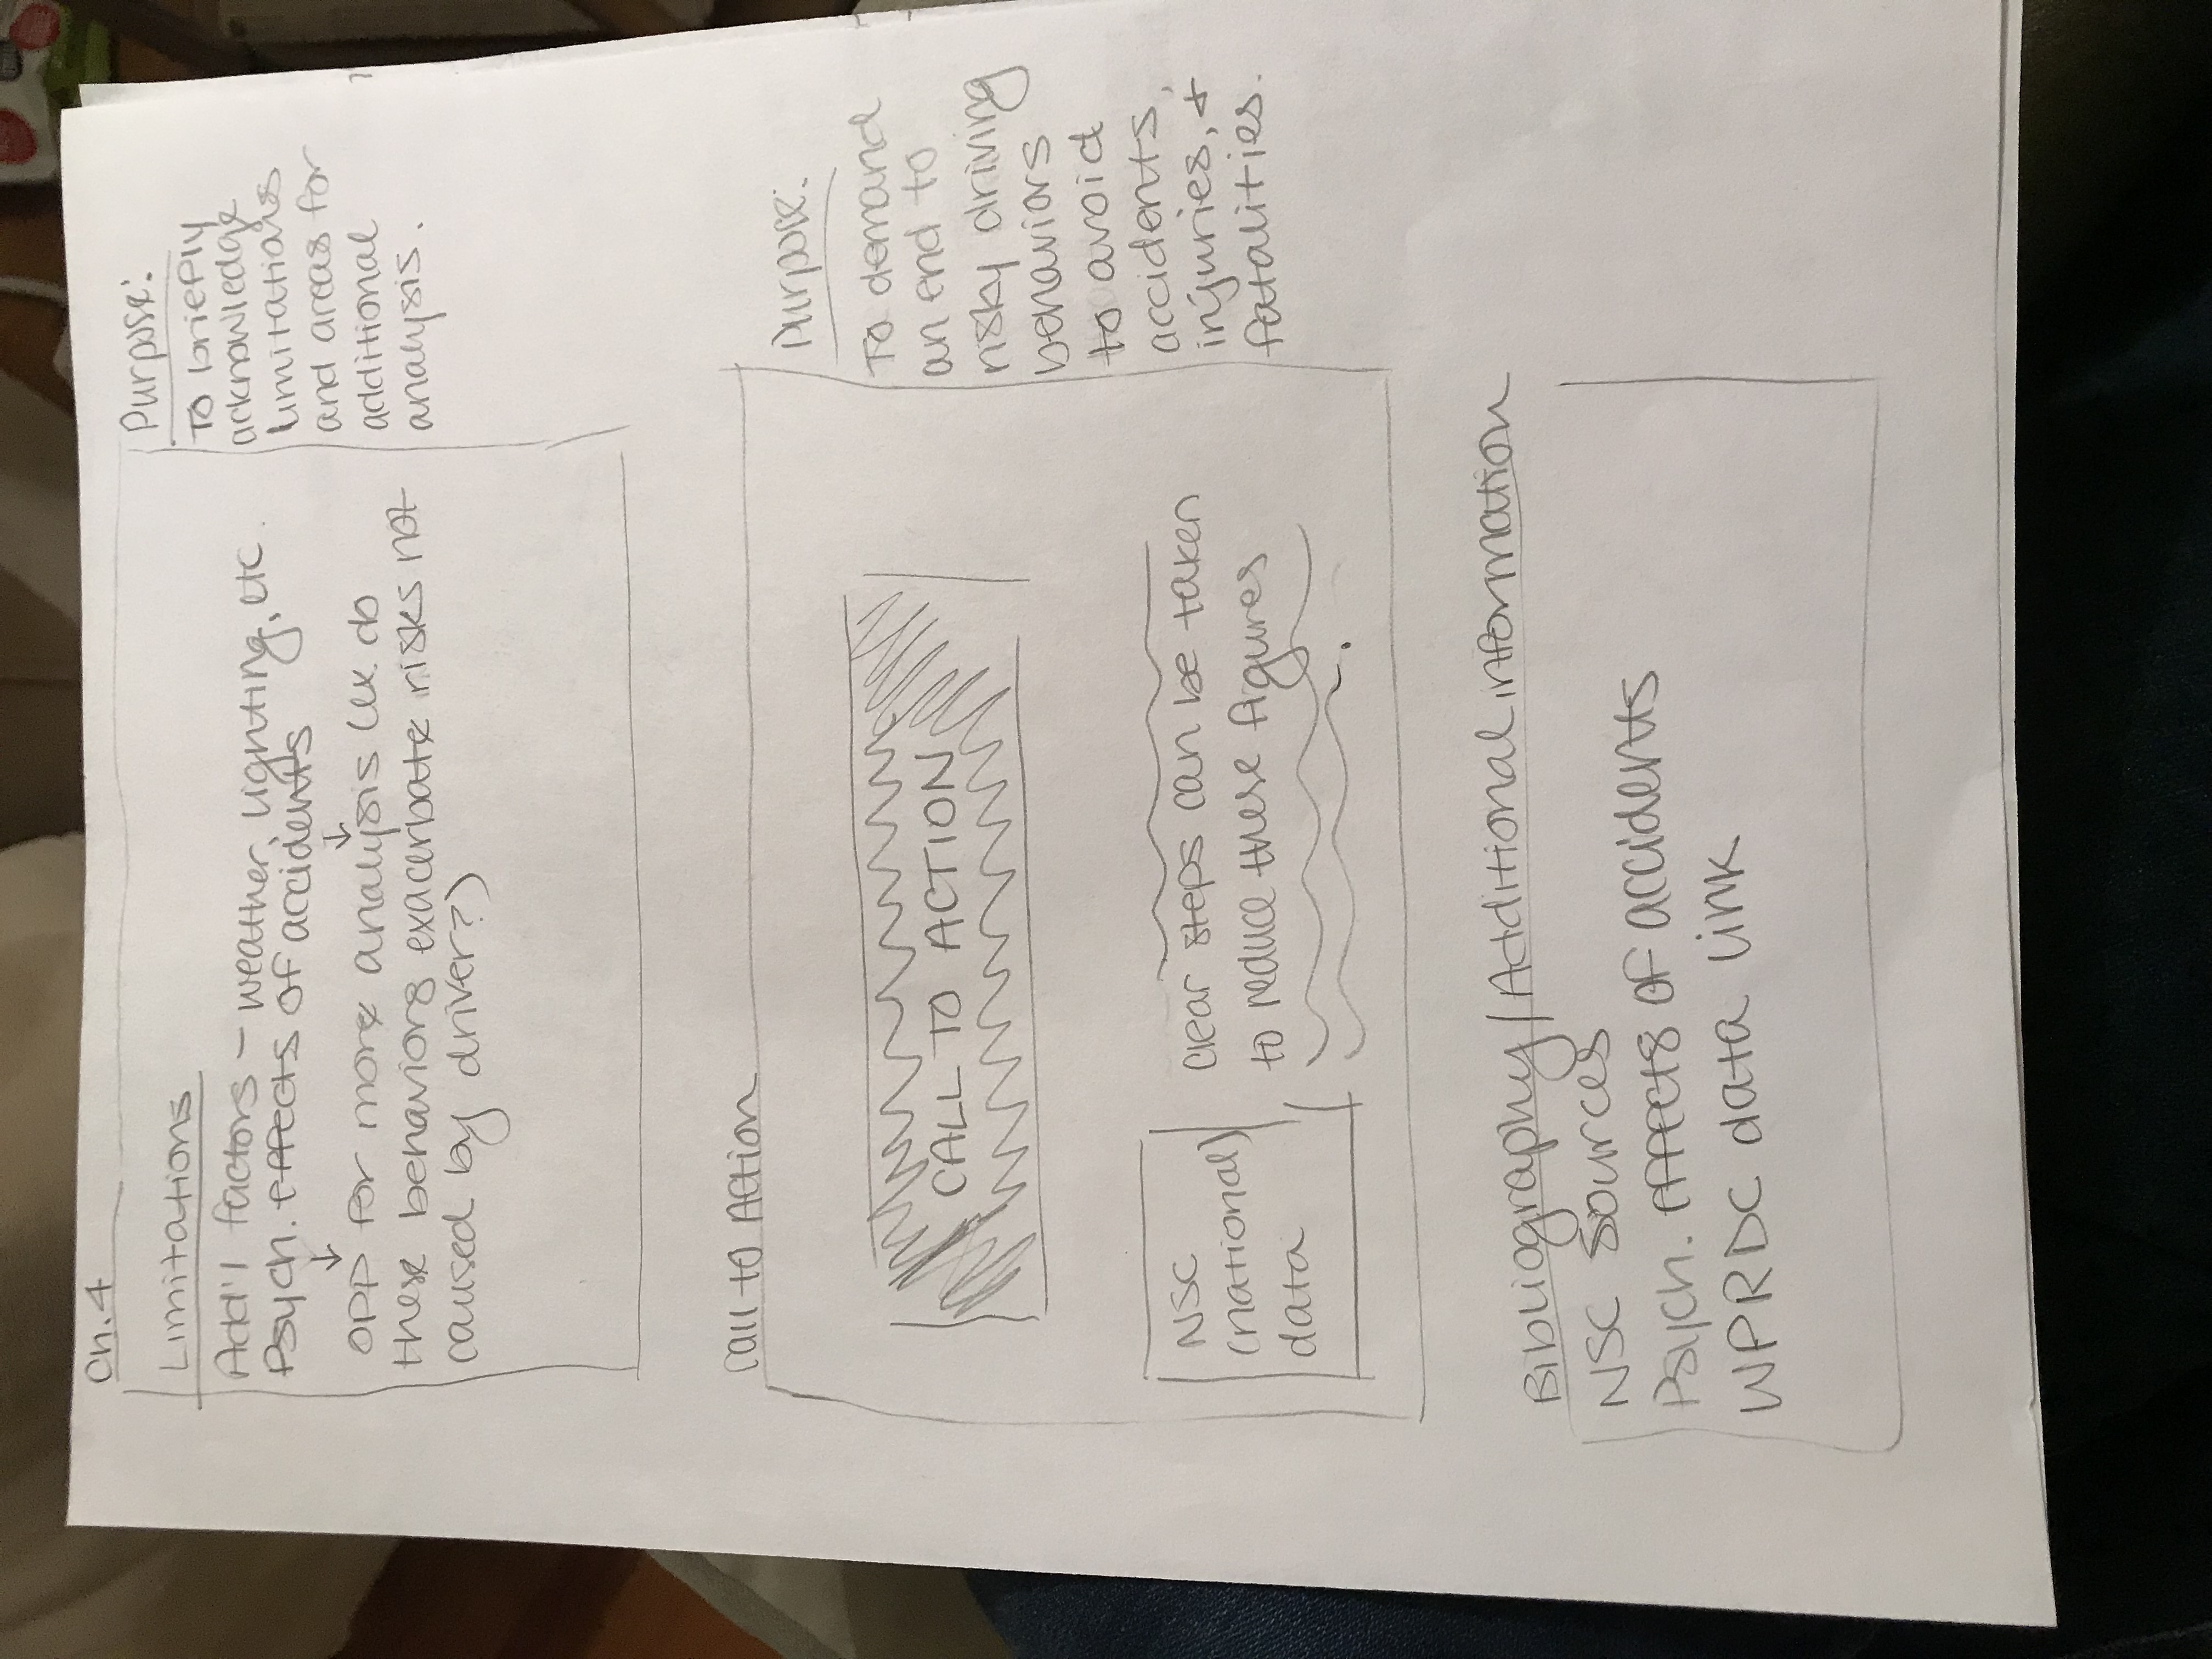 Ch. 4
Limitations
Add'l factors - weather, lighting, etc.
Psych. effects of accidents
↓ ↓
opp for more analysis (ex. do
these behaviors exacerbate risks not
caused by driver?)
Purpose:
To briefly
acknowledge
limitations
and areas for
additional
analysis.
Call to Action
CALL TO ACTION
NSC
(national)
data
clear steps can be taken
to reduce these figures
.
Purpose:
To demand
an end to
risky driving
behaviors
to avoid
accidents,
injuries, +
fatalities.
Bibliography/Additional information
NSC sources
Psych. effects of accidents
WPRDC data link